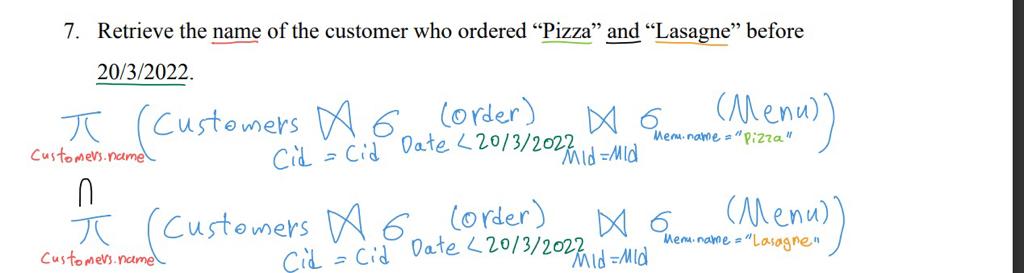 7. Retrieve the name of the customer who ordered “Pizza” and “Lasagne” before
20/3/2022.
π Customers.name (Customers ⋈ Cid = Cid б Date < 20/3/2022 (order) ⋈ MId = MId б Menu.name = "Pizza" (Menu))
∩
π Customers.name (Customers ⋈ Cid = Cid б Date < 20/3/2022 (order) ⋈ MId = MId б Menu.name = "Lasagne" (Menu))